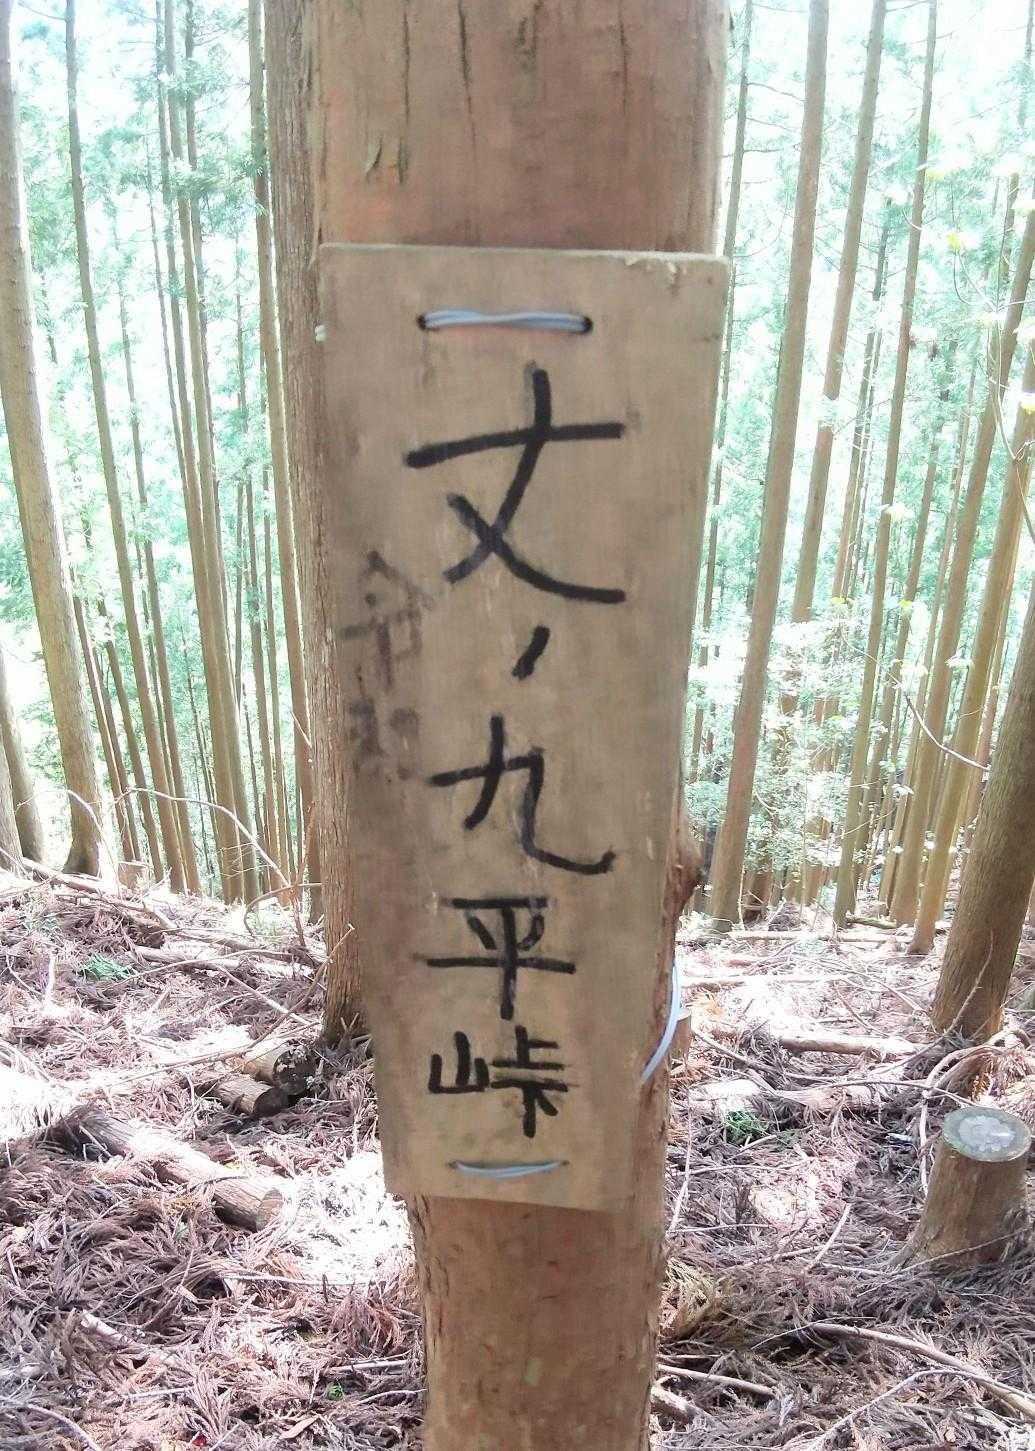 丈ノ九平峠